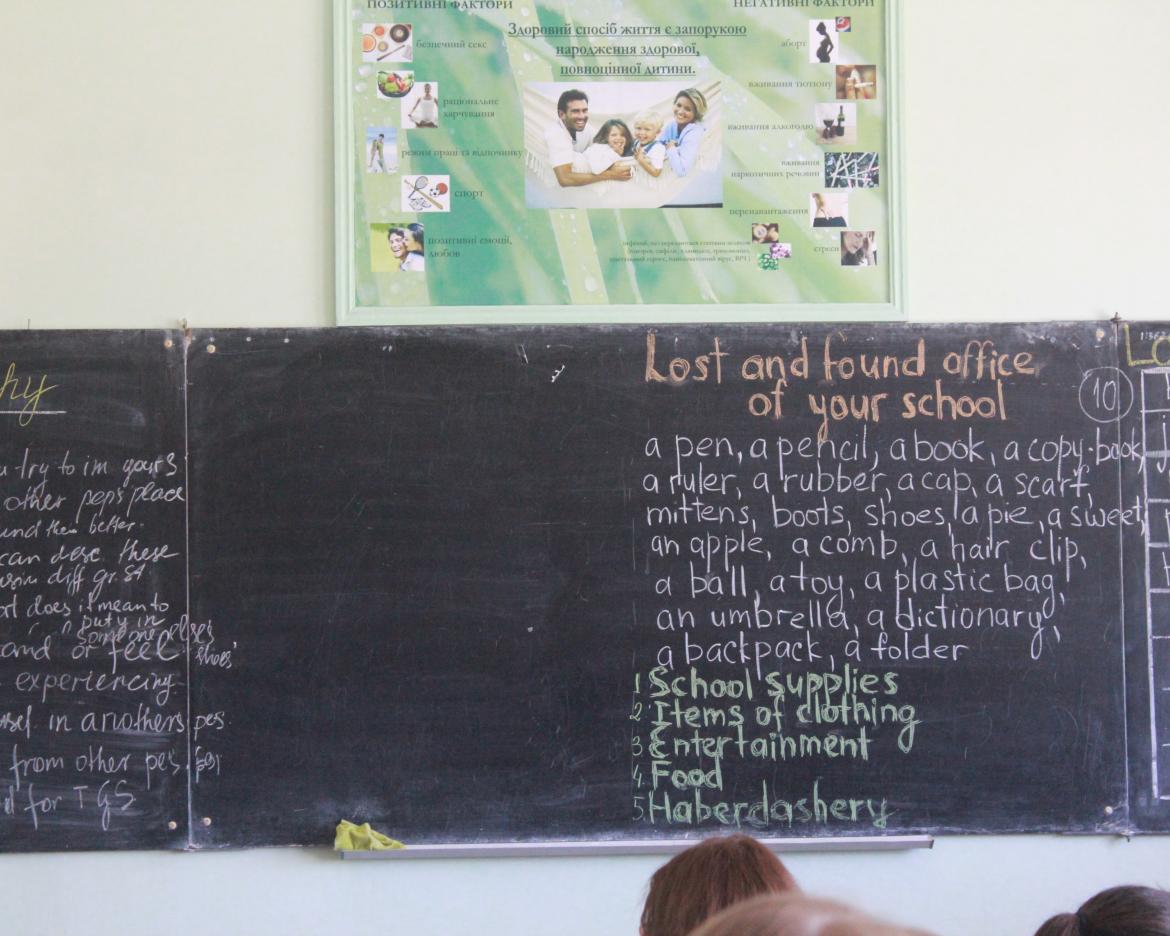 ПОЗИТИВНІ ФАКТОРИ
НЕГАТИВНІ ФАКТОРИ
Здоровий спосіб життя є запорукою
народження здорової,
повноцінної дитини.
безпечний секс
раціональне
харчування
режим праці та відпочинку
спорт
позитивні емоції,
любов
аборт
вживання тютюну
вживання алкоголю
вживання
наркотичних речовин
перенавантаження
стреси
hy
try to im yours
other pep's place
und them better.
can desc these
diff gr. St
does it mean to
put y in
someone else's
and or feel shoes'
experiencing
in anothers pes.
from other pes.
for TGS
Lost and found office
of your school
10
a pen, a pencil, a book, a copy-book,
a ruler, a rubber, a cap, a scarf,
mittens, boots, shoes, a pie, a sweet,
an apple, a comb, a hair clip,
a ball, a toy, a plastic bag,
an umbrella, a dictionary,
a backpack, a folder
1 School supplies
2 Items of clothing
3 Entertainment
4. Food
5. Haberdashery
Lo